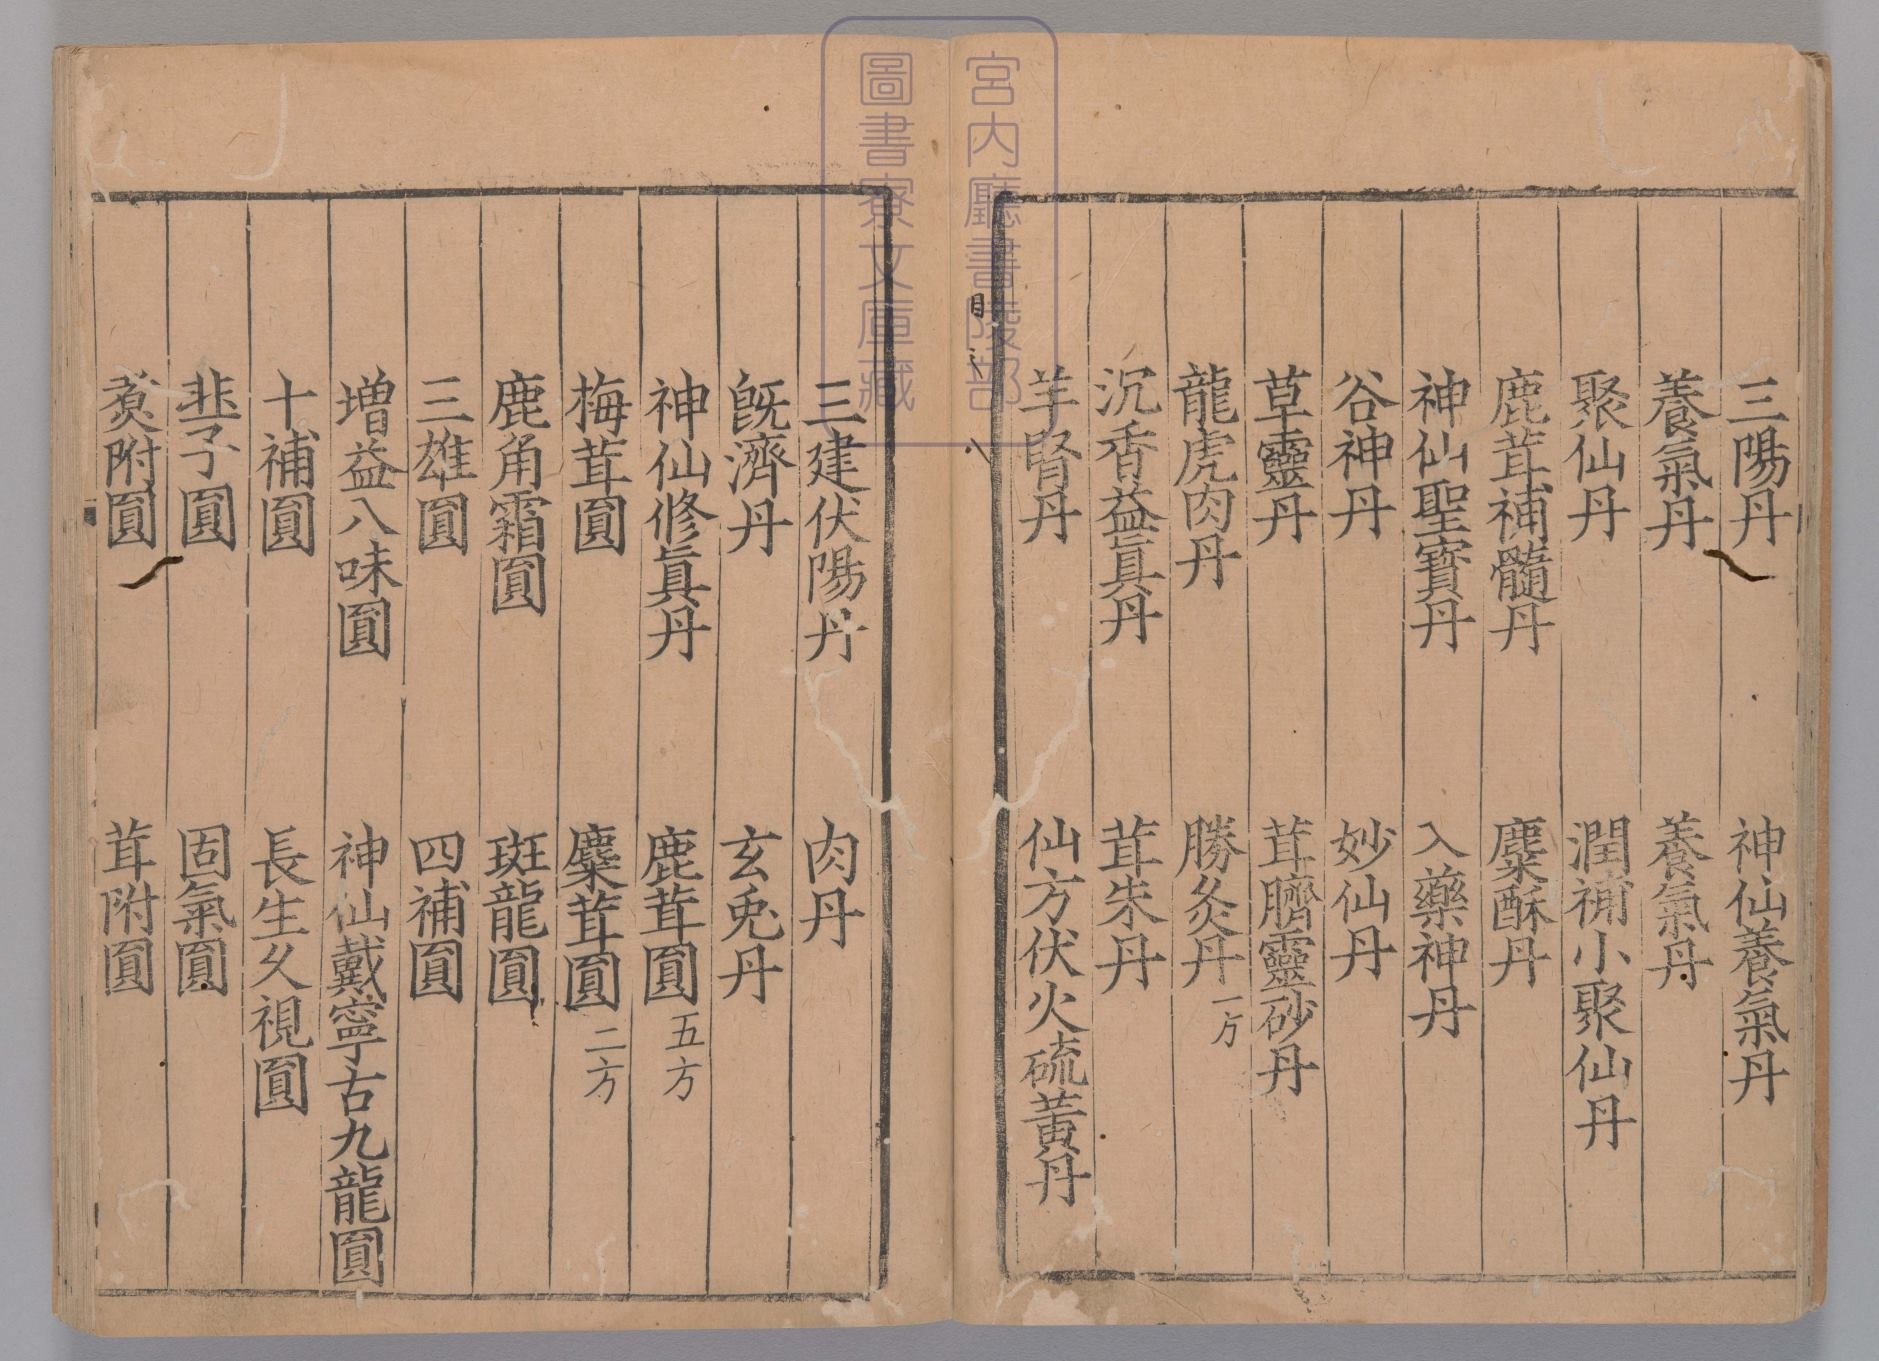 三陽丹　神仙養氣丹
養氣丹　養氣丹
聚仙丹　潤補小聚仙丹
鹿茸補髓丹　麋酥丹
神仙聖寶丹　入藥神丹
谷神丹　妙仙丹
草靈丹　茸臍靈砂丹
龍虎肉丹　勝灸丹一方
沉香益眞丹　茸朱丹
羊腎丹　仙方伏火硫黃丹
目
三建伏陽丹　肉丹
旣濟丹　玄兎丹
神仙修眞丹　鹿茸圓五方
梅茸圓　麋茸圓二方
鹿角霜圓　斑龍圓
三雄圓　四補圓
增益八味圓　神仙戴寧古九龍圓
十補圓　長生久視圓
韭子圓　固氣圓
附圓　茸附圓
宮内廳書陵部
圖書寮文庫藏